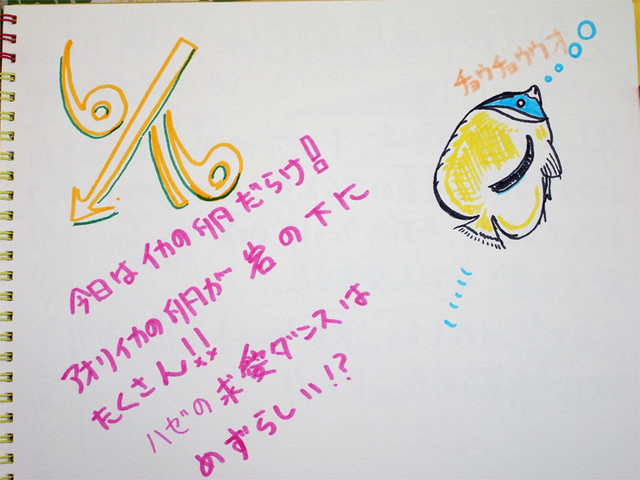 6/6
チョウチョウウオ
今日はイカの卵だらけ!!
アオリイカの卵が岩の下に
たくさん!!
ハゼの求愛ダンスは
めずらしい!?